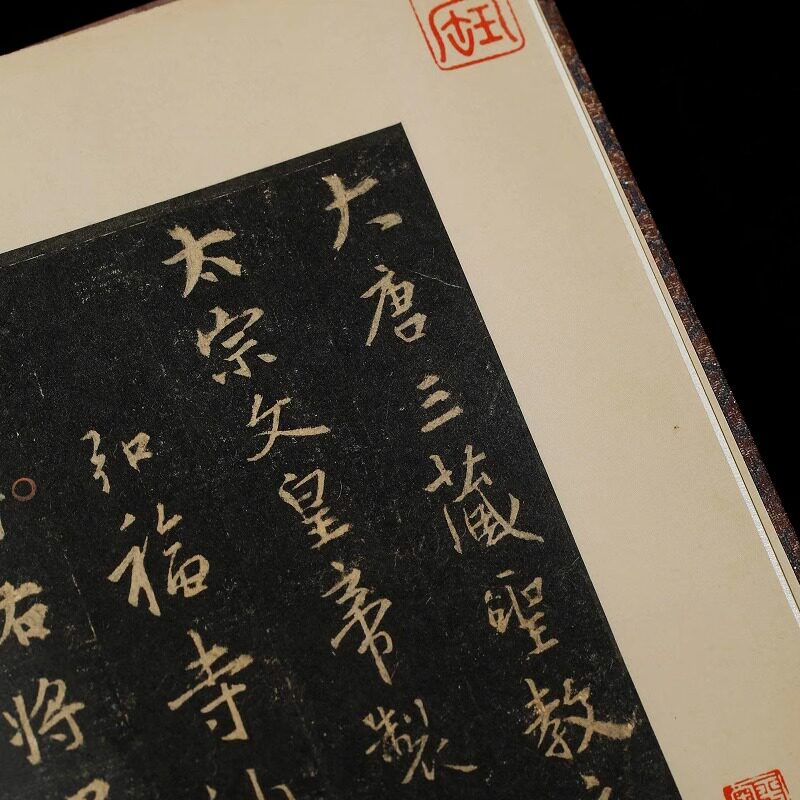 大唐三藏聖教
太宗文皇帝製
弘福寺
右將